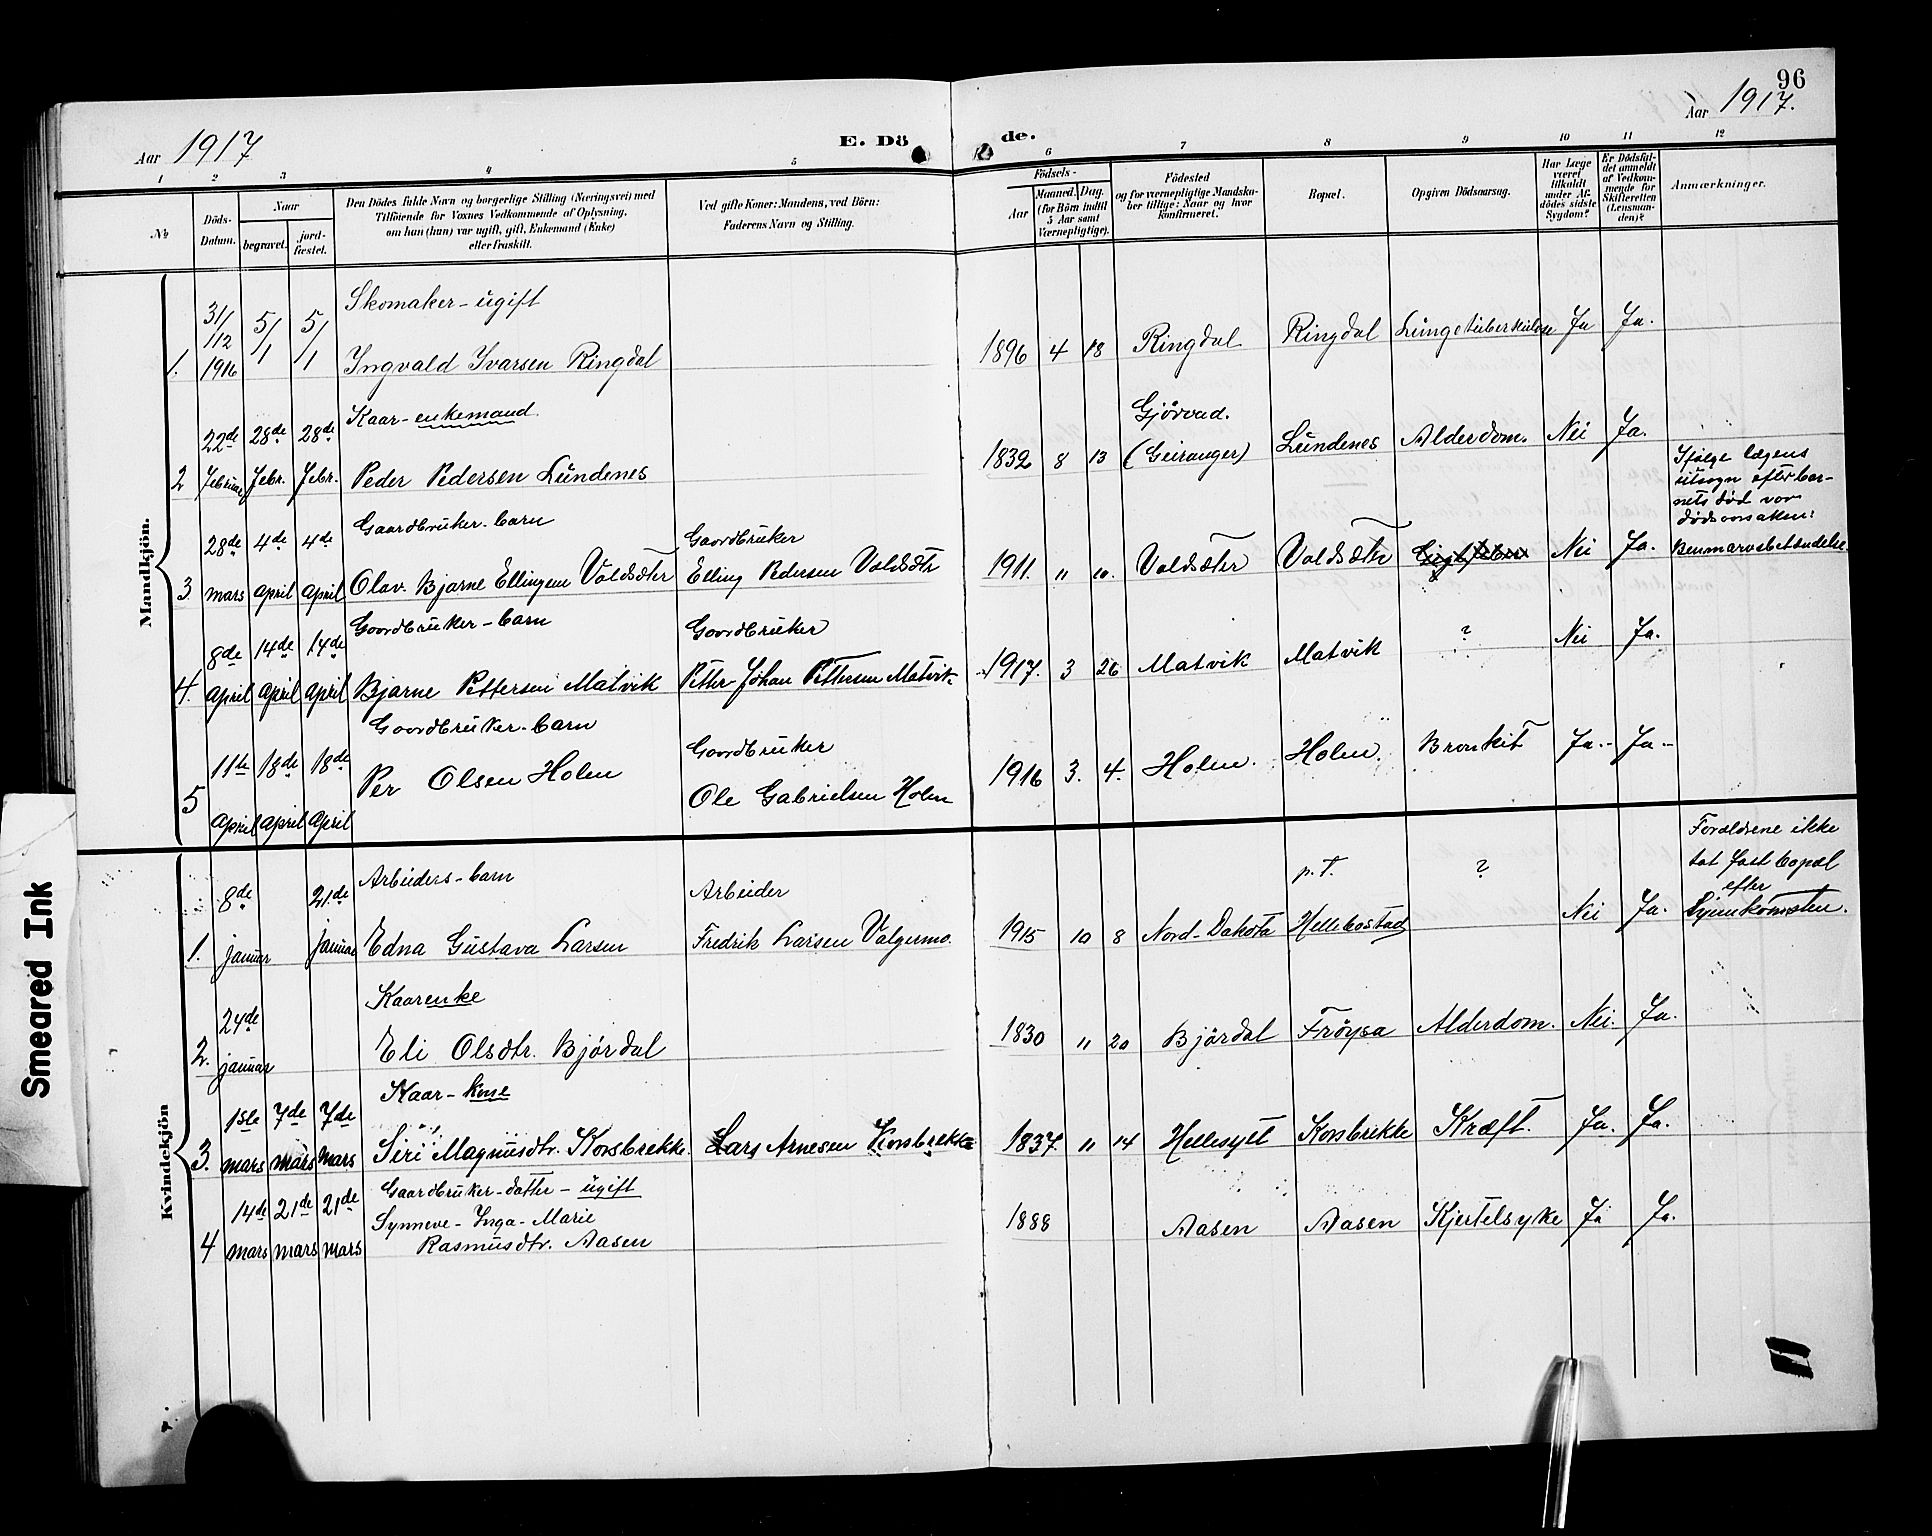 96
Aar 1917
E. Dö de.
Aar 1917.
1 2 3 4 5 6 7 8 9 10 11 12
No
Döds-Datum.
Naar
begravet.
jord-fæstet.
Den Dödes fulde Navn og borgerlige Stilling (Næringsvei) med
Tilföiende for Voxnes Vedkommende af Oplysning,
om han (hun) var ugift, gift, Enkemand (Enke)
eller fraskilt.
Ved gifte Koner: Mandens, ved Börn:
Faderens Navn og Stilling.
Födsels-
Aar
Maaned. Dag.
(for Börn indtil
5 Aar samt
Værnepligtige).
Födested
og for værnepligtige Mandska-
ber tillige: Naar og hvor
konfirmeret.
Bopæl.
Opgiven Dödsaarsag.
Har Læge
været
tilkaldt
under Af-
dödes sidste
Sygdom?
Er Dödsfal-
det anmeldt
af Vedkom-
mende for
Skifteretten
(Lensman-
den)?
Anmærkninger.
Mandkjön.
Skomaker - ugift
1. 31/12 1916 5/1 5/1 Ingvald Ivarsen Ringdal 1896 4 18 Ringdal Ringdal Lungetuberkulose Ja Ja.
Kaar - enkemand.
Gjörvad.
2 22de Februar 28de Febr. 28de Febr. Peder Pedersen Lundenes 1832 8 13 (Geiranger) Lundenes Alderdom. Nei Ja.
Ifölge lægens
utsagn efter bar-
nets död var
dödsorsaken:
Benmarvsbetændelse.
Gaardbruker-barn
Gaardbruker
3. 28de mars 4de april 4de april Olav Bjarne Ellingsen Voldsæter Elling Pedersen Voldsætr 1911. " 10. Voldsæter Voldsæter Nei Ja.
Gaardbruker - barn
Gaardbruker
4. 8de april 14de april 14de april Bjarne Pettersen Matvik Petter Johan Pettersen Matvik 1917. 3 26 Matvik Matvik ? Nei Ja.
Gaardbruker-barn
Gaardbruker
5 11te april 18de april 18de april Per Olsen Holen Ole Gabrielsen Holen 1916 3. 4. Holen. Holen. Bronkit Ja. Ja.
Kvindekjön
Arbeiders-barn
Arbeider
p.t.
1. 8de januar 21de januar Edna Gustava Larsen Fredrik Larsen Valgermo. 1915 10 8 Nord-Dakota Hellebostad ? Nei Ja.
Forældrene ikke
tat fast bopæl
efter
hjemkomsten.
Kaarenke
2. 24de januar Eli Olsdtr. Björdal 1830 " 20 Björdal Fröysa Alderdom. Nei. Ja.
Kaar - kone
3. 1ste mars 7de mars 7de mars Siri Magnusdtr. Korsbrekke. Lars Arnesen Korsbrekke 1837. " 14 Hellesylt Korsbrekke Kræft. Ja. Ja.
Gaardbruker-datter - ugift
Synneve-Inga-Marie
4 14de mars 21de mars 21de mars Rasmusdtr. Aasen 1888 Aasen Aasen Kjertelsyke Ja Ja.
Smeared Ink